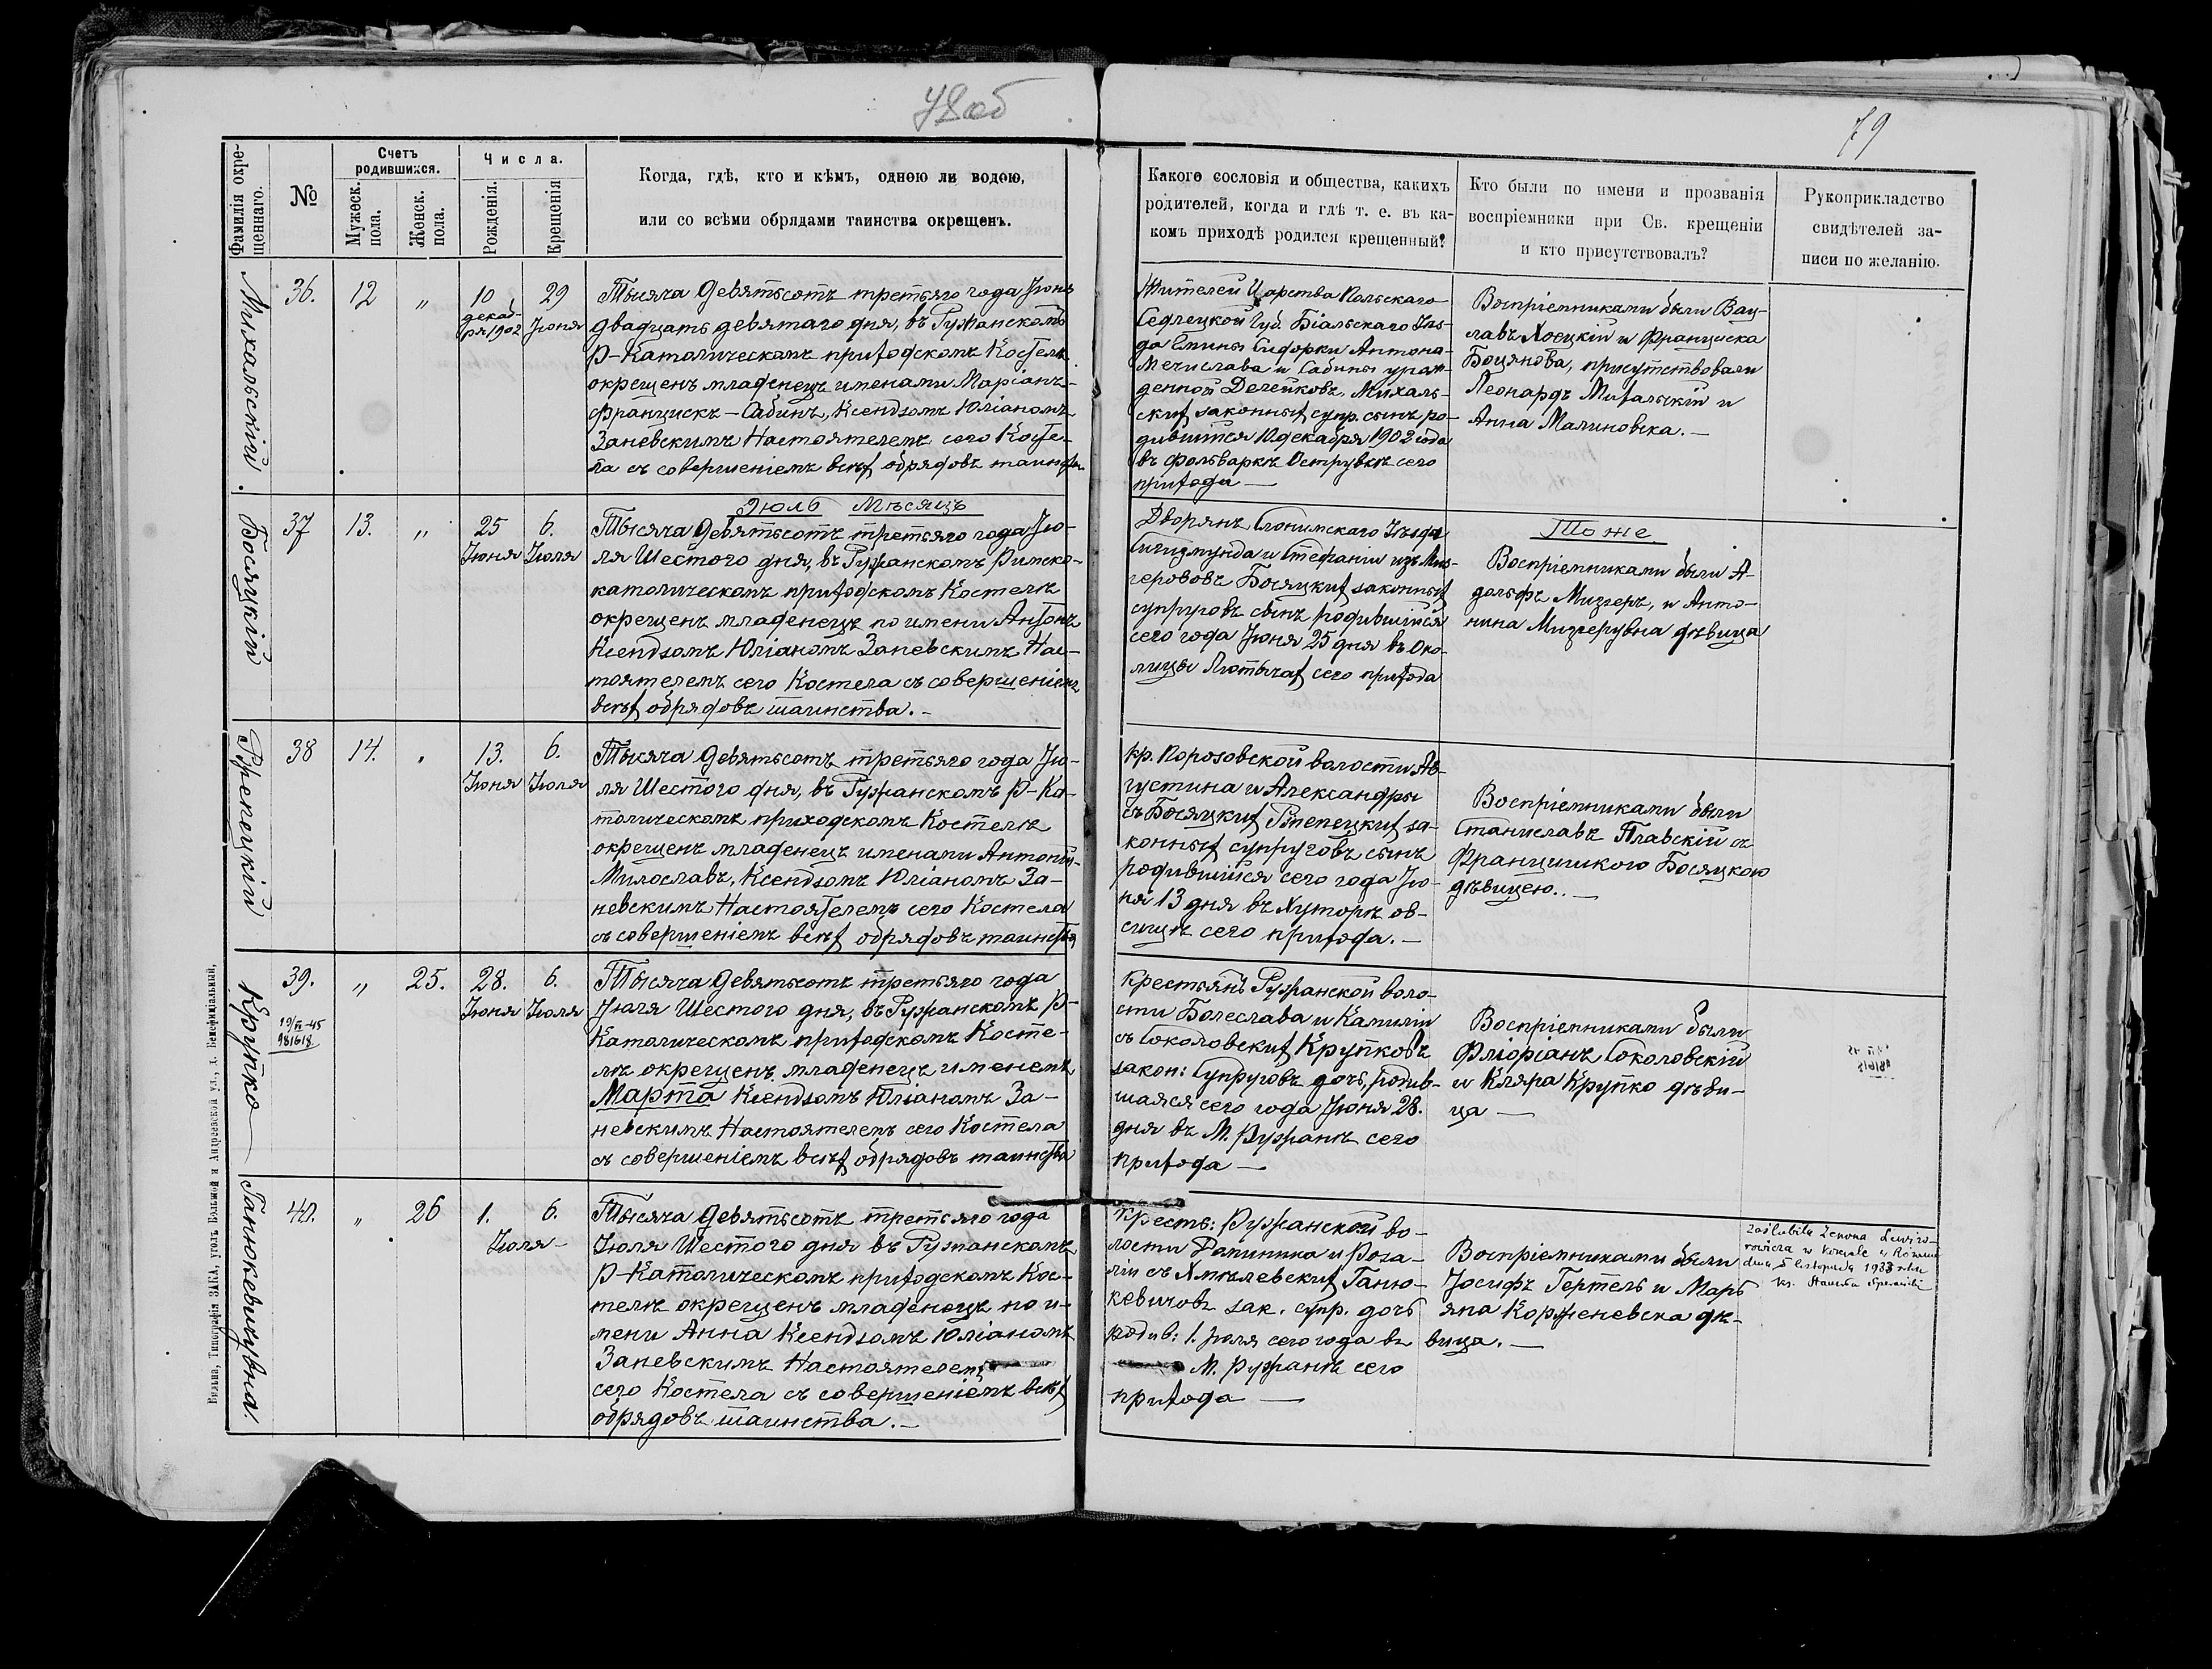 78об
79
Фамилія окре-
щеннаго.
№
Счетъ
родившихся.
Мужеск.
пола.
Женск.
пола.
Числа.
Рожденія.
Крещенія
Когда, гдѣ, кто и кѣмъ, одною ли водою,
или со всѣми обрядами таинства окрещенъ.
Какого сословія и общества, какихъ
родителей, когда и гдѣ т. е. въ ка-
комъ приходѣ родился крещенный?
Кто были по имени и прозванія
воспріемники при Св. крещеніи
и кто присутствовалъ?
Рукоприкладство
свидѣтелей за-
писи по желанію.
Михальскій.
36.
12
„
10
декаб-
ря 1902
29
Іюня
Тысяча девятьсотъ третьяго года Іюня
двадцать девятаго дня, въ Ружанскомъ
Р-Католическомъ приходскомъ Костелѣ
окрещенъ младенецъ именами Маріанъ-
Францискъ-Сабинъ, Ксендзомъ Юліаномъ
Заневскимъ Настоятелемъ сего Косте-
ла съ совершеніемъ всѣх обрядовъ таинства
Жителей Царства Польскаго
Седлецкой Губ. Біальскаго Уѣз-
да Гмины Сидорки Антона-
Мечислава и Сабины урож-
денной Делейковъ, Михаль-
ских законных супр. сынъ ро-
дившійся 10 декабря 1902 года
въ фольваркѣ Острувкѣ сего
прихода —
Воспріемниками были Вац-
лавъ Хосцкій и Франциска
Боцянова, присутствовали
Леонардъ Михальскій и
Анна Малиновска. —
Босяцкій
37
13.
„
25
Іюня
6.
Іюля
Іюль Мѣсяцъ
Тысяча девятьсотъ третьяго года Ію-
ля Шестого дня, въ Ружанскомъ Римско-
католическомъ приходскомъ Костелѣ
окрещенъ младенецъ по имени Антонъ
Ксендзомъ Юліаномъ Заневскимъ Нас-
тоятелемъ сего Костела съ совершеніемъ
всѣх обрядовъ таинства. —
Дворянъ Слонимскаго Уѣзда
Сигизмунда и Стефаніи изъ Миз-
геровъ Босяцких законных
супруговъ сынъ родившійся
сего года Іюня 25 дня въ Око-
лицы Лютычах сего прихода
Тоже.
Воспріемниками были А-
дольфъ Мизгеръ, и Анто-
нина Мизгерувна дѣвица
Рженецкій
38
14.
„
13.
Іюня
6.
Іюля
Тысяча девятьсотъ третьяго года Ію-
ля Шестого дня, въ Ружанскомъ Р-Ка-
толическомъ приходскомъ Костелѣ
окрещенъ младенецъ именами Антоній-
Милославъ, Ксендзомъ Юліаномъ За-
невскимъ Настоятелемъ сего Костела
съ совершеніемъ всѣх обрядовъ таинства
Кр. Порозовской волости Ав-
густина и Александры
съ Босяцких Рженецких за-
конных супруговъ сынъ
родившійся сего года Ію-
ня 13 дня въ Хуторѣ ов-
сищѣ сего прихода. —
Воспріемниками были
Станиславъ Плавскій съ
Францишкою Босяцкою
дѣвицею. —
Крупко
39.
981618
„
25.
28.
Іюня
6.
Іюля
Тысяча девятьсотъ третьяго года
Іюля Шестого дня, въ Ружанскомъ Р-
Католическомъ приходскомъ Косте-
лѣ окрещенъ младенецъ именемъ
Марта Ксендзомъ Юліаномъ За-
невскимъ Настоятелемъ сего Костела
съ совершеніемъ всѣх обрядовъ таинства
Крестьянъ Ружанской воло-
сти Болеслава и Камиліи
съ Соколовских Крупковъ
закон: Супруговъ дочь, родив-
шаяся сего года Іюня 28.
дня въ М. Ружанѣ сего
прихода —
Воспріемниками были
Фліоріанъ Соколовскій
и Кляра Крупко дѣви-
ца —
Ганюкевичувна.
40.
„
26
1.
6.
Іюля —
Тысяча девятьсотъ третьяго года
Іюля Шестого дня въ Ружанскомъ
Р-Католическомъ приходскомъ Кос-
телѣ окрещенъ младенецъ по и-
мени Анна Ксендзомъ Юліаномъ
Заневскимъ Настоятелемъ
сего Костела съ совершеніемъ всѣх
обрядовъ таинства. —
Кресть: Ружанской во-
лости Доминика и Роза-
ліи съ Хмѣлевских Ганю-
кевичовъ зак. супр. дочь
родив: 1. Іюля сего года въ
М. Ружанѣ сего
прихода —
Воспріемниками были
Іосифъ Гертель и Марь
яна Корженевска дѣ-
вица. —
zaślubiła Zenona
dnia 5 listopada 1933 roku
Вильна, Типографія ЗАКА, уголъ Вольной и Андреевской ул., д. Бенефиціальный,